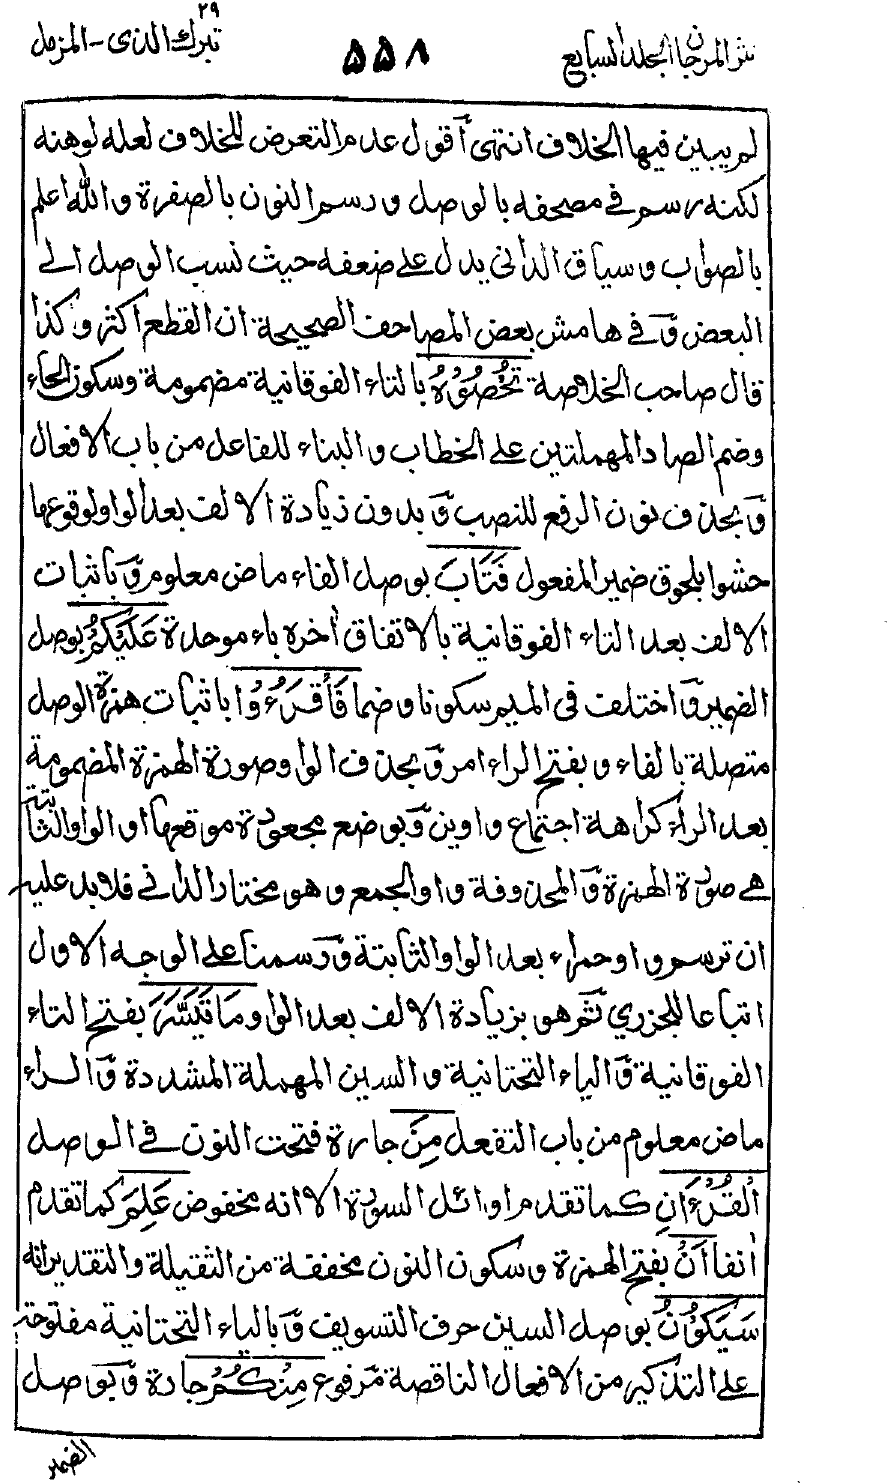 نثر المرجان الجلد السابع
٥٥٨
٢٩
تبرك الذى - المزمل
لم يبين فيها الخلاف انتهى أقول عدم التعرض للخلاف لعله لوهنه
لكنه رسم في مصحفه بالوصل ورسم النون بالصفرة والله اعلم
بالصواب وسياق الدانى يدل على ضعفه حيث نسب الوصل الى
البعض وَفي هامش بعض المصاحف الصحيحة ان القطع اكثر وكذا
قال صاحب الخلاصة تُحْصُوْهُ بالتاء الفوقانية مضمومة وسكون الحاء
وضم الصاد المهملتين على الخطاب والبناء للفاعل من باب الافعال
وَبحذف نون الرفع للنصب وَبدون زيادة الالف بعد الواو لوقوعها
حشوا بلحوق ضمير المفعول فَتَابَ بوصل الفاء ماض معلوم وَباثبات
الالف بعد التاء الفوقانية بالاتفاق أخره باء موحدة عَلَيْكُمْ بوصل
الضمير وَاختلف فى الميم سكونا وضما فَاقْرَءُوْا باثبات همزة الوصل
متصلة بالفاء وبفتح الراء امر وَبحذف الواو صورة الهمزة المضمومة
بعد الراء كراهة اجتماع واوين وَبوضع مجعودة موقعها او الواو الثابتة
هي صورة الهمزة وَالمحذوفة واو الجمع وهو مختار الدانى فلابد عليه
ان ترسم واو حمراء بعد الواو الثابتة وَرسمنا على الوجه الاول
اتباعا للجزري ثم هو بزيادة الالف بعد الواو مَا تَيَسَّرَ بفتح التاء
الفوقانية وَالياء التحتانية والسين المهملة المشددة وَالراء
ماض معلوم من باب التفعل مِنَ جارة فتحت النون في الوصل
الْقُرْءَانِ كما تقدم اوائل السورة الا انه مخفوض عَلِمَ كما تقدم
أنفا اَنْ بفتح الهمزة وسكون النون مخففة من الثقيلة والتقدير انه
سَيَكُوْنُ بوصل السين حرف التسويف وَبالياء التحتانية مفتوحة
على التذكير من الافعال الناقصة مرفوع مِنْكُمْ جارة وَبوصل
الضمير